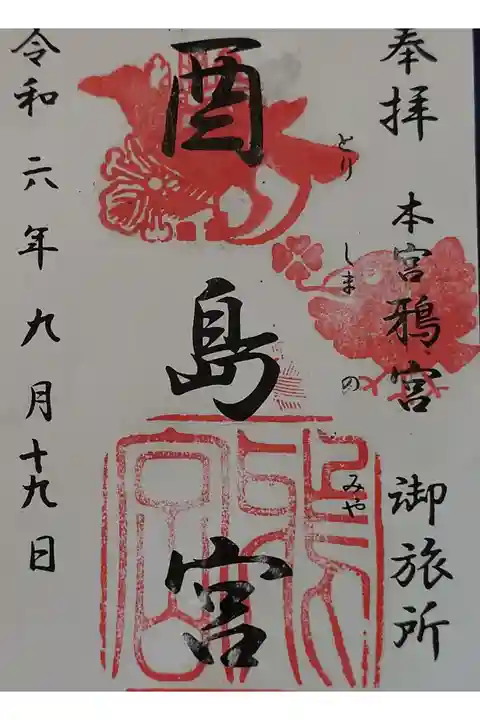 奉拝
本宮鴉宮 御旅所
酉島宮
とりしまのみや
令和六年九月十九日